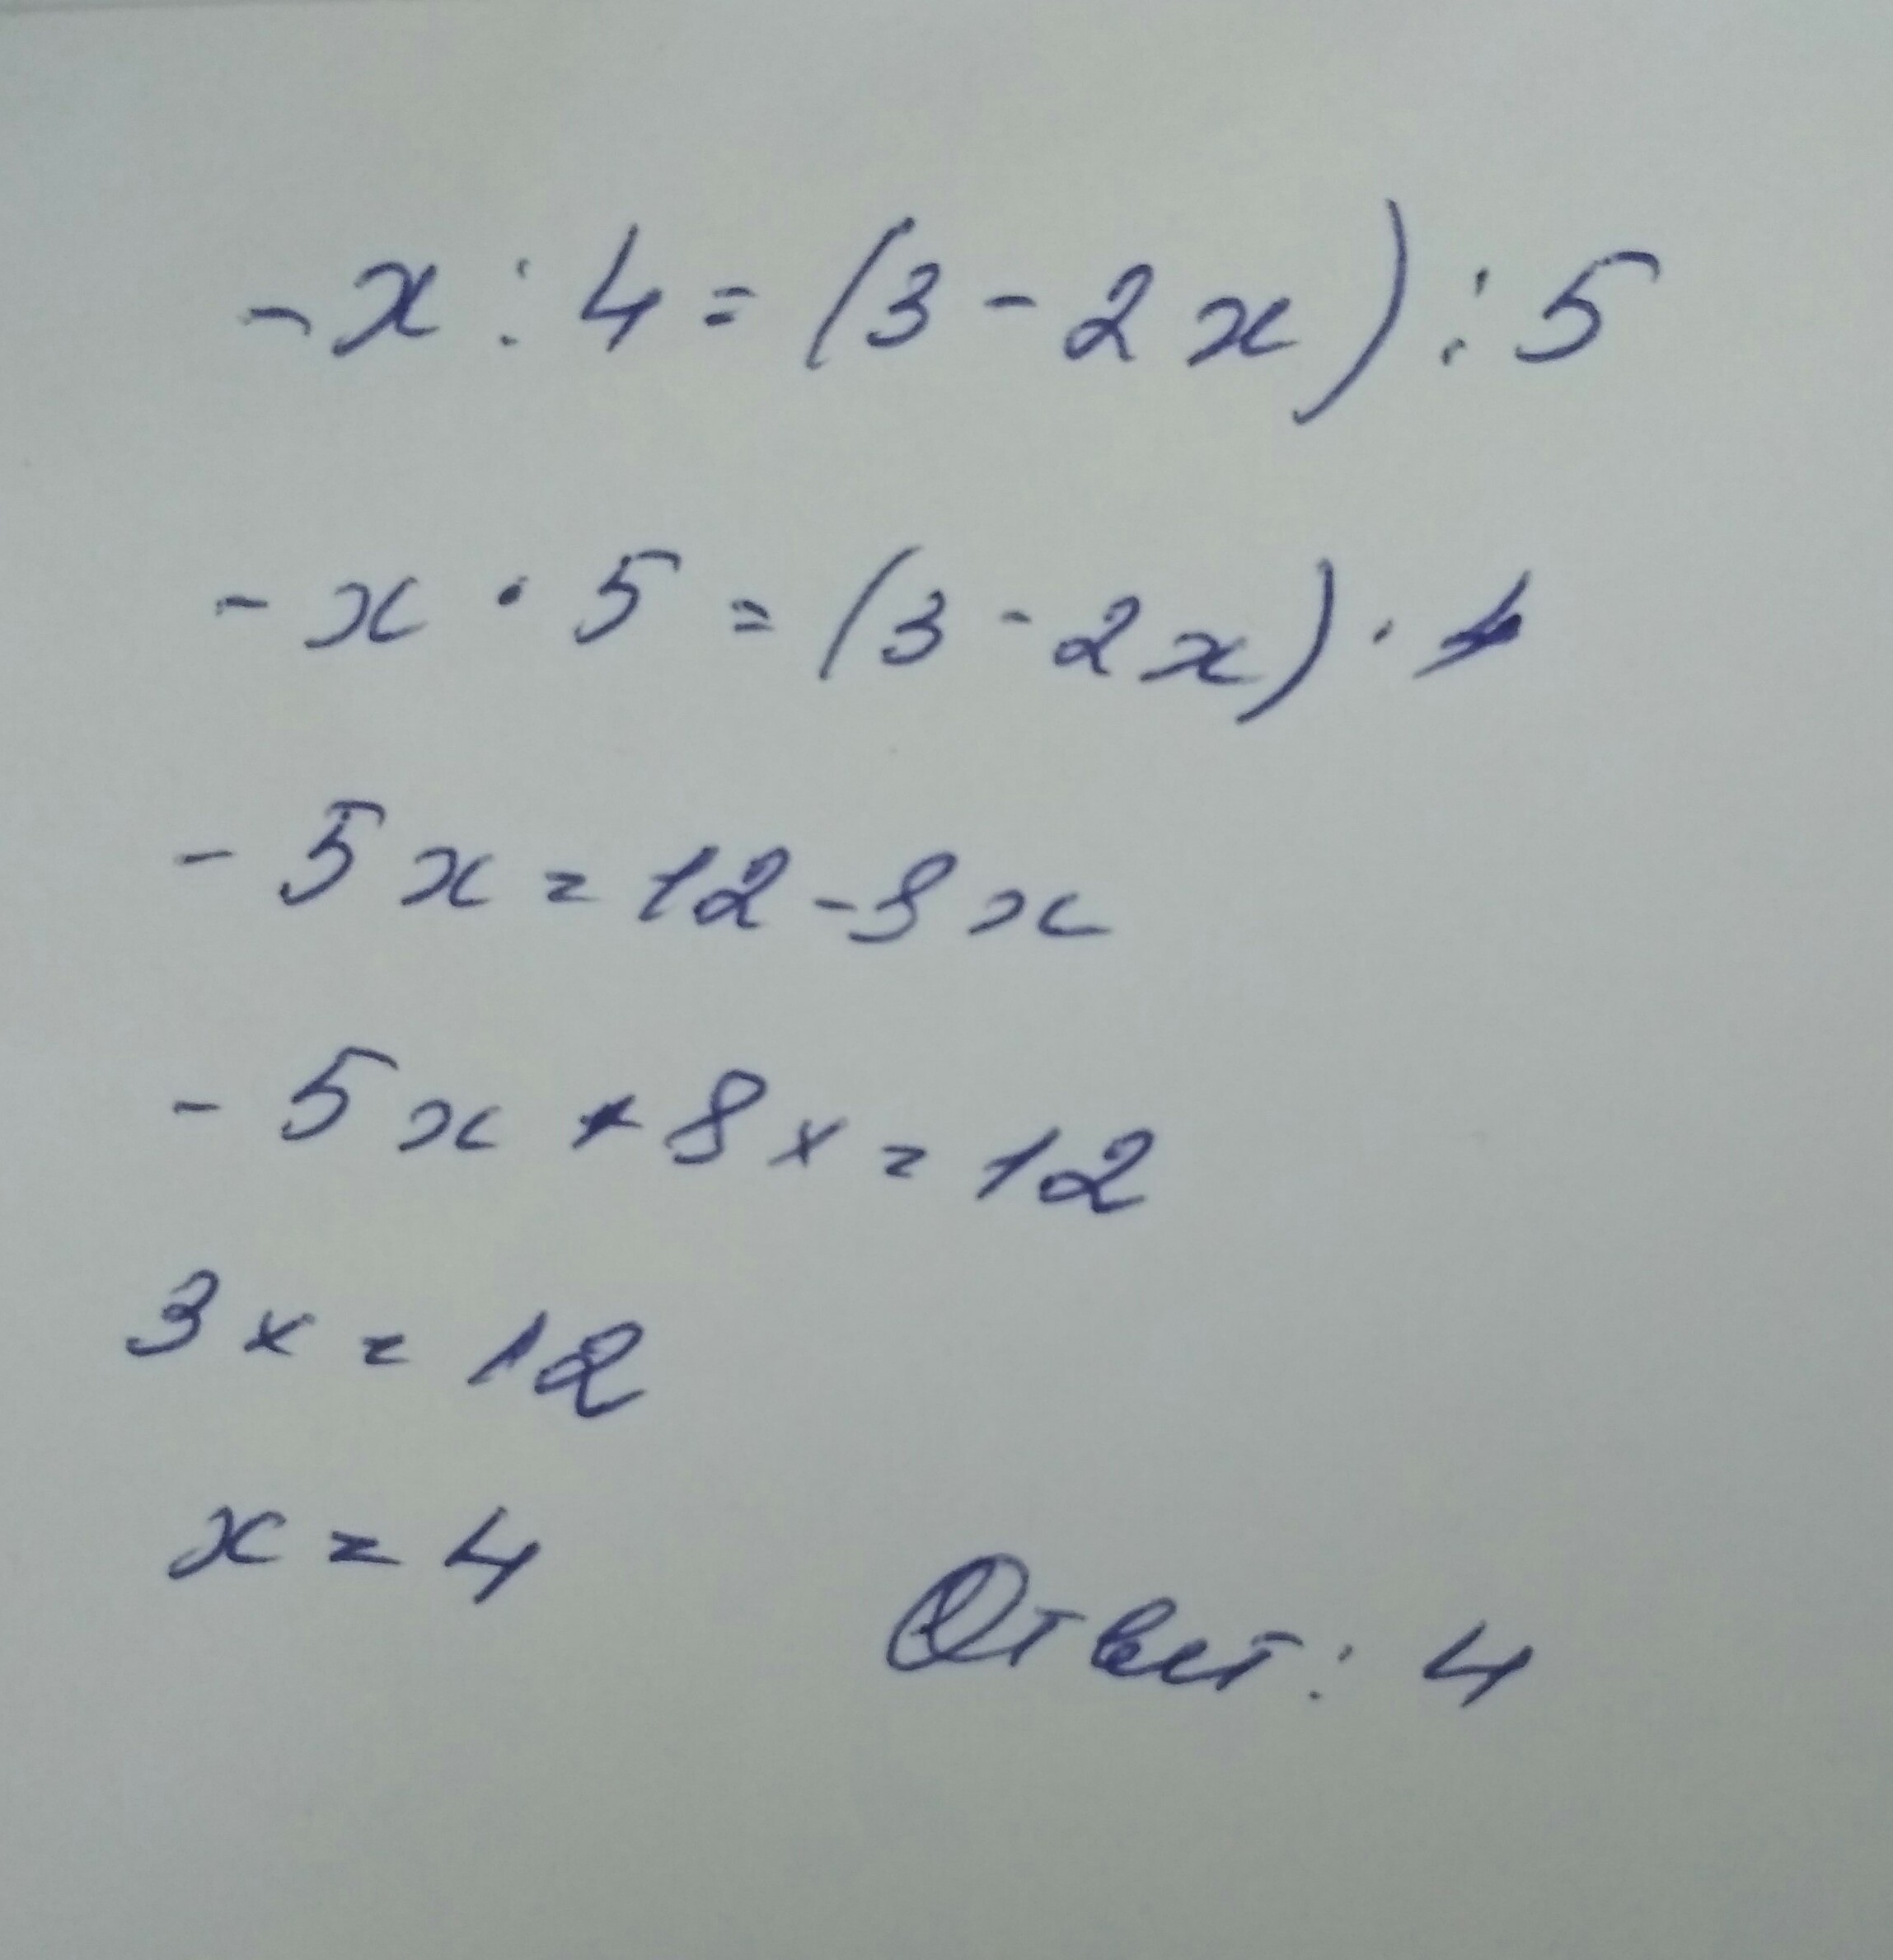 -x : 4 = (3 - 2x) : 5
-x · 5 = (3 - 2x) · 4
-5x = 12 - 8x
-5x + 8x = 12
3x = 12
x = 4
Ответ: 4